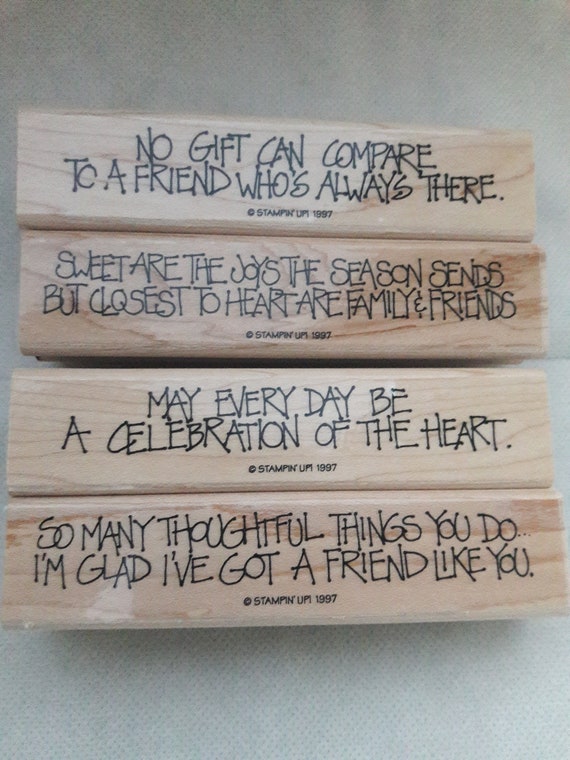 NO GIFT CAN COMPARE
TO A FRIEND WHO'S ALWAYS THERE.
© STAMPIN' UP! 1997
SWEET ARE THE JOYS THE SEASON SENDS
BUT CLOSEST TO HEART ARE FAMILY & FRIENDS
© STAMPIN' UP! 1997
MAY EVERY DAY BE
A CELEBRATION OF THE HEART.
© STAMPIN' UP! 1997
SO MANY THOUGHTFUL THINGS YOU DO...
I'M GLAD I'VE GOT A FRIEND LIKE YOU.
© STAMPIN' UP! 1997